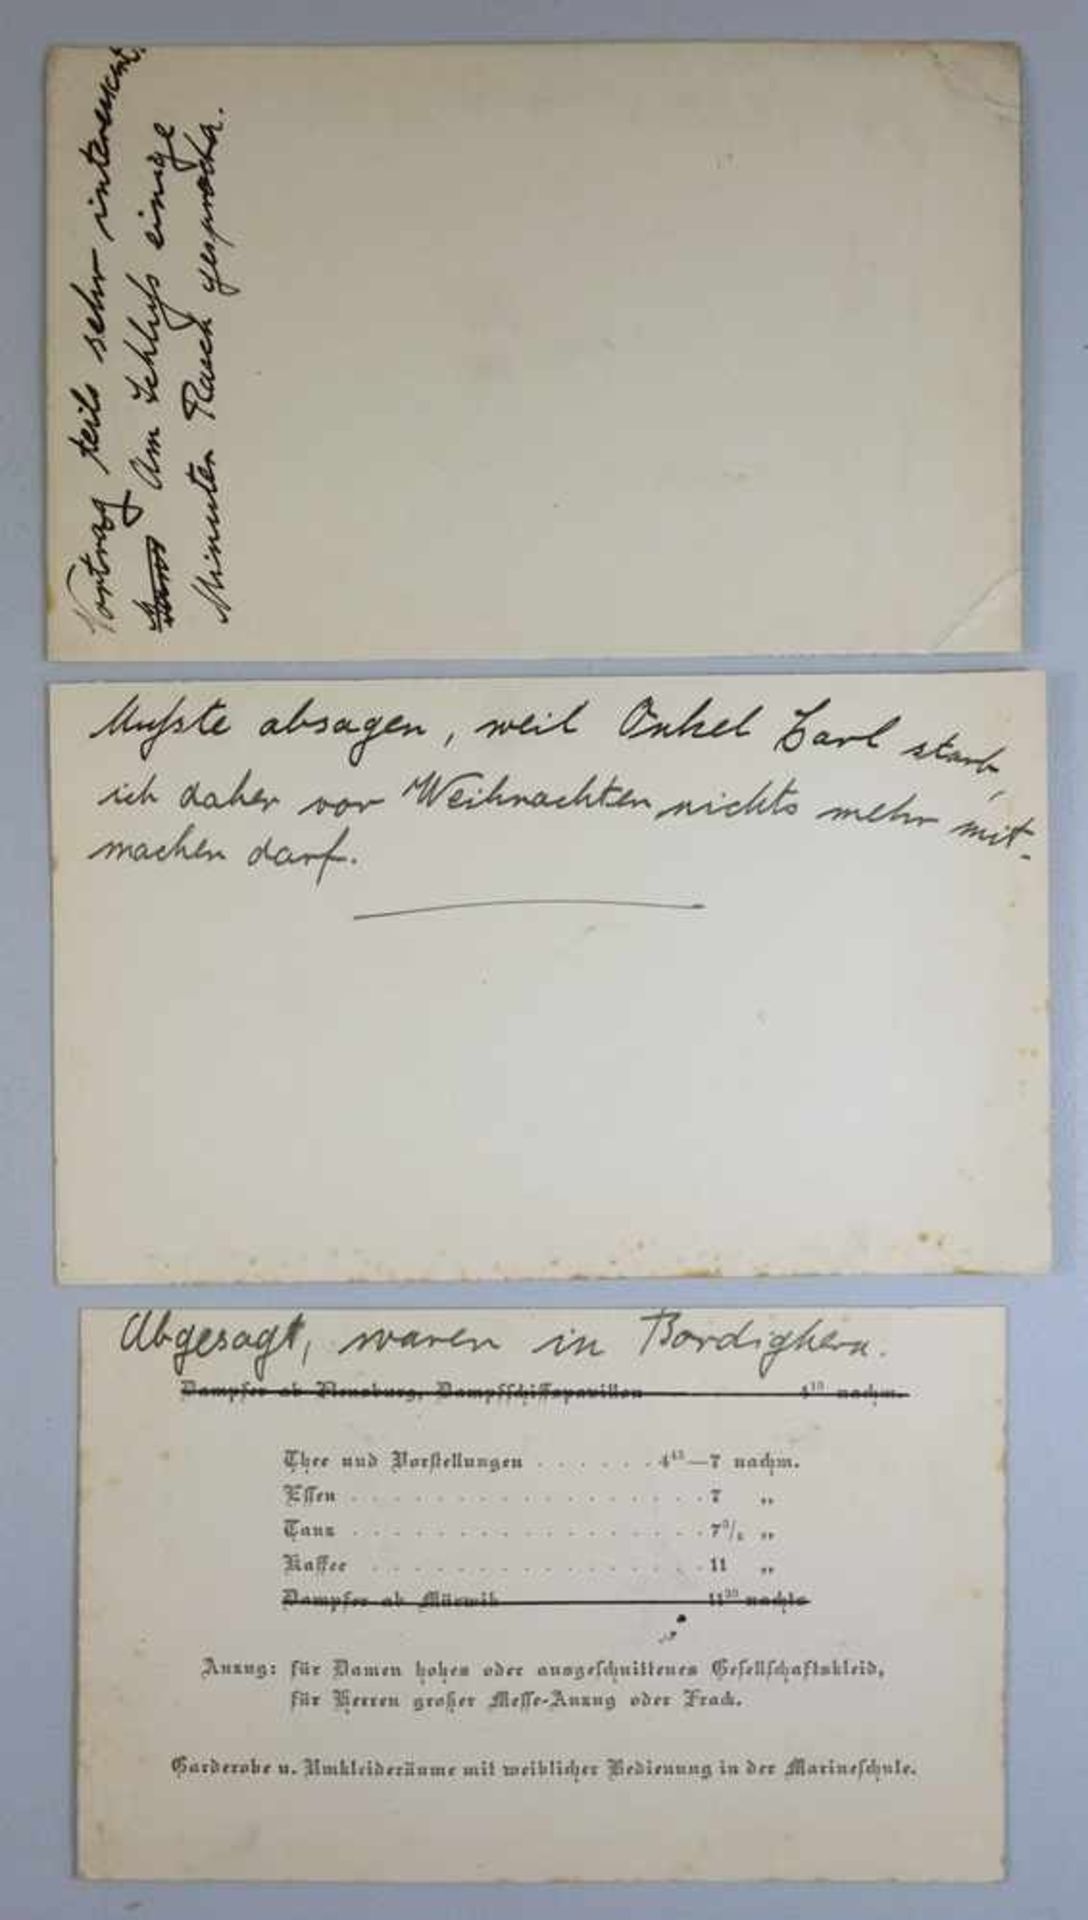 Vortrag teils sehr interessant.
Am Schluß einige
Minuten Rasch gesprochen.
Mußte absagen, weil Onkel Carl starb,
ich daher vor Weihnachten nichts mehr mit-
machen darf.
Abgesagt, waren in Bordighera.
Dampfer ab Flensburg, Dampfschiffspavillon 4¹⁰ nachm.
Thee und Vorstellungen . . . . . . 4⁴⁵—7 nachm.
Essen . . . . . . . . . . . . . . . . . 7 „
Tanz . . . . . . . . . . . . . . . . . 7 „
Kaffee . . . . . . . . . . . . . . . . 11 „
Dampfer ab Mürwik 11³⁰ nachts
Anzug: für Damen hohes oder ausgeschnittenes Gesellschaftskleid,
für Herren großer Messe-Anzug oder Frack.
Garderobe u. Umkleideräume mit weiblicher Bedienung in der Marineschule.